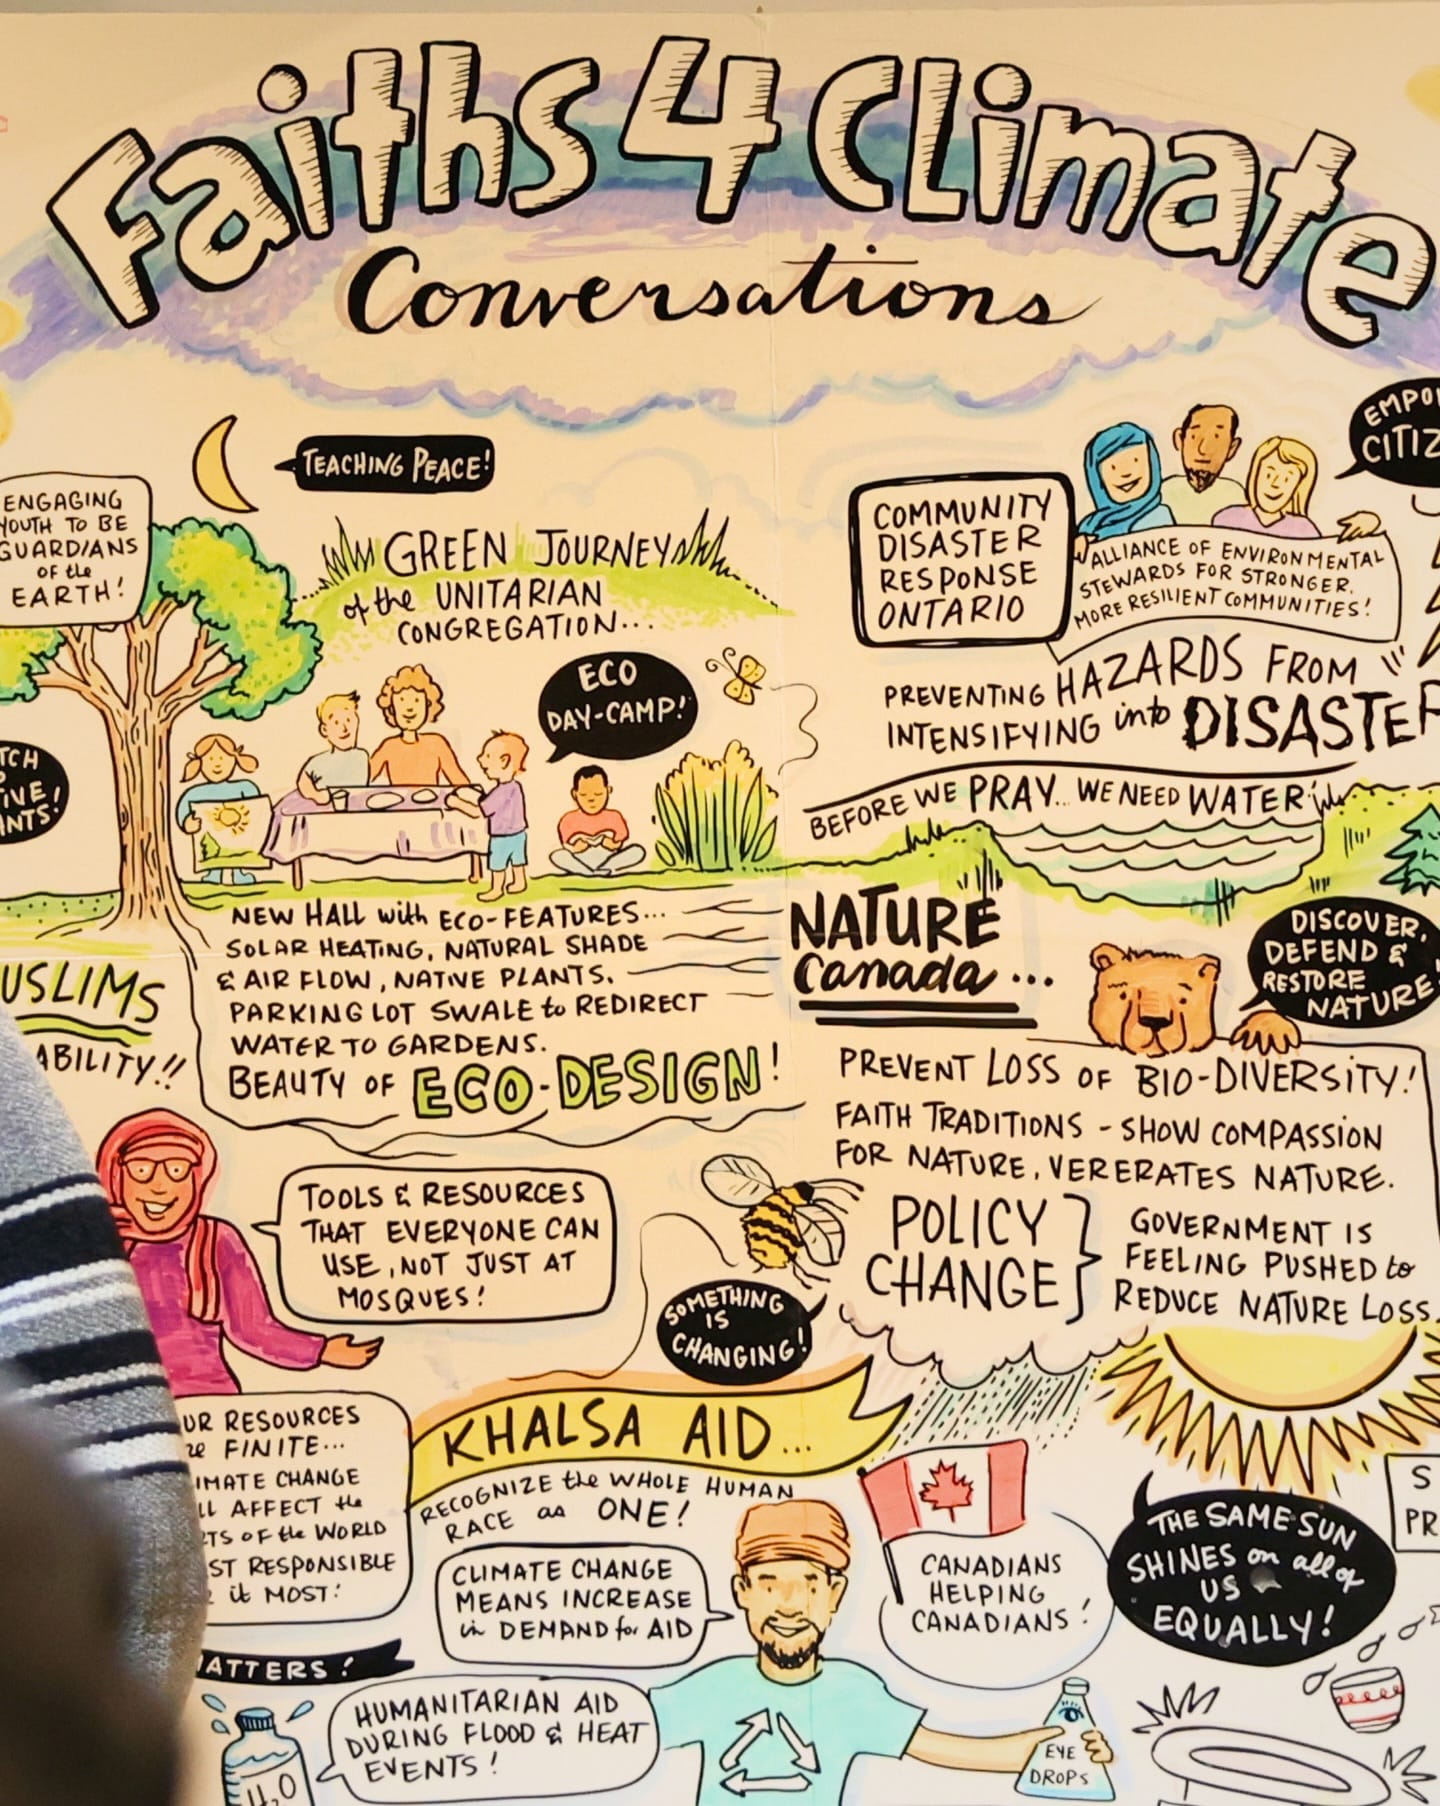 Faiths 4 Climate
Conversations
TEACHING PEACE!
ENGAGING
YOUTH TO BE
GUARDIANS
OF the
EARTH!
GREEN JOURNEY
of the UNITARIAN
CONGREGATION...
ECO
DAY-CAMP!
NEW HALL with ECO-FEATURES...
SOLAR HEATING, NATURAL SHADE
& AIR FLOW, NATIVE PLANTS.
PARKING LOT SWALE to REDIRECT
WATER TO GARDENS.
BEAUTY OF ECO-DESIGN!
COMMUNITY
DISASTER
RESPONSE
ONTARIO
ALLIANCE OF ENVIRONMENTAL
STEWARDS FOR STRONGER,
MORE RESILIENT COMMUNITIES!
PREVENTING HAZARDS FROM
INTENSIFYING into DISASTER
BEFORE WE PRAY... WE NEED WATER!
NATURE
Canada...
DISCOVER,
DEFEND &
RESTORE
NATURE!
PREVENT LOSS OF BIO-DIVERSITY!
FAITH TRADITIONS - SHOW COMPASSION
FOR NATURE, VERERATES NATURE.
POLICY
CHANGE
GOVERNMENT IS
FEELING PUSHED to
REDUCE NATURE LOSS.
USLIMS
ABILITY!!
TOOLS & RESOURCES
THAT EVERYONE CAN
USE, NOT JUST AT
MOSQUES!
SOMETHING
IS
CHANGING!
UR RESOURCES
FINITE...
IMATE CHANGE
LL AFFECT the
TS OF the WORLD
ST RESPONSIBLE
it MOST!
ATTERS!
H2O
HUMANITARIAN AID
DURING FLOOD & HEAT
EVENTS!
KHALSA AID...
RECOGNIZE the WHOLE HUMAN
RACE as ONE!
CLIMATE CHANGE
MEANS INCREASE
in DEMAND for AID
CANADIANS
HELPING
CANADIANS!
THE SAME SUN
SHINES on all of
US
EQUALLY!
EYE
DROPS